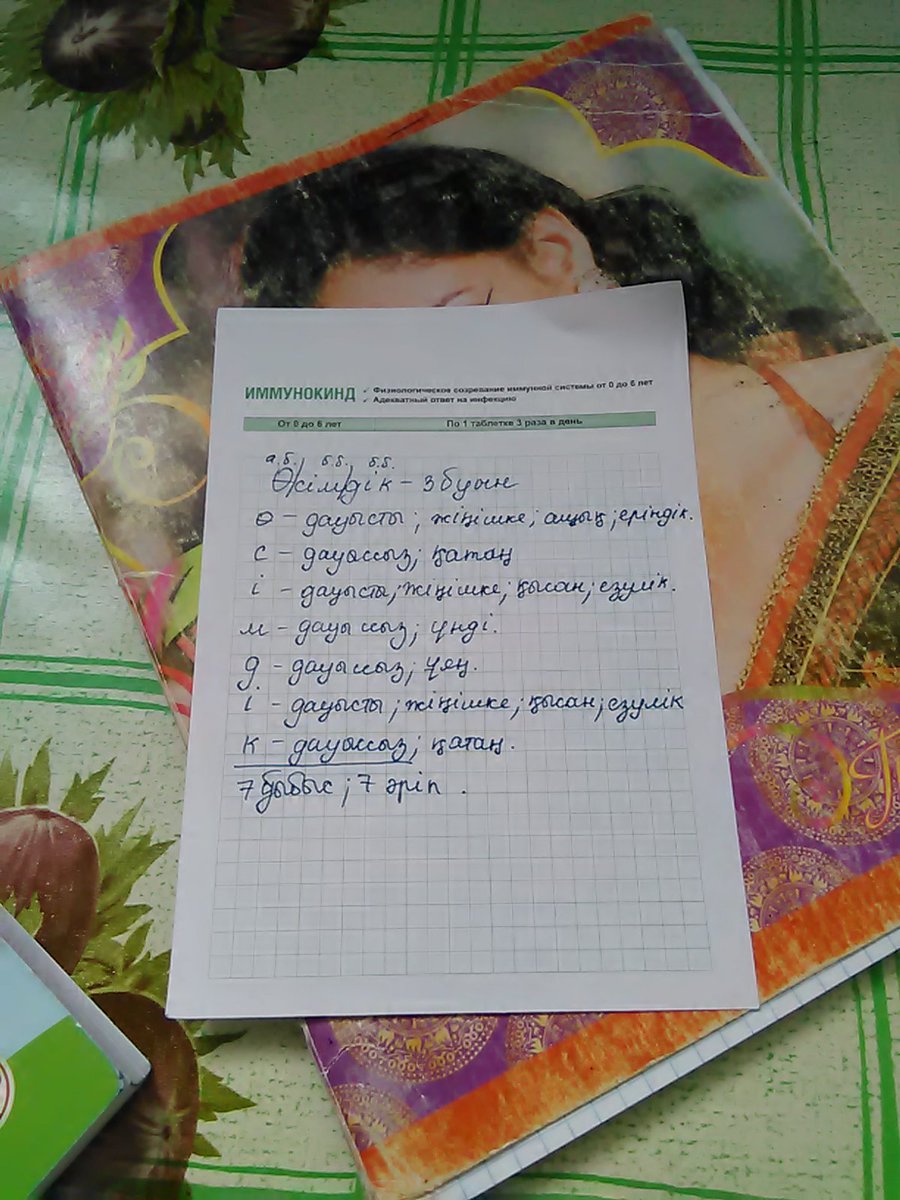 ИММУНОКИНД ✓ Физиологическое созревание иммунной системы от 0 до 6 лет
✓ Адекватный ответ на инфекцию
От 0 до 6 лет По 1 таблетке 3 раза в день
а.б. б.б. б.б.
Ө/сім/дік – 3 буын
ө – дауысты; жіңішке; ашық; еріндік.
с – дауыссыз; қатаң
і – дауысты; жіңішке; қысаң; езулік.
м – дауыссыз; үнді.
д – дауыссыз; ұяң.
і – дауысты; жіңішке; қысаң; езулік
к – дауыссыз; қатаң.
7 дыбыс; 7 әріп.